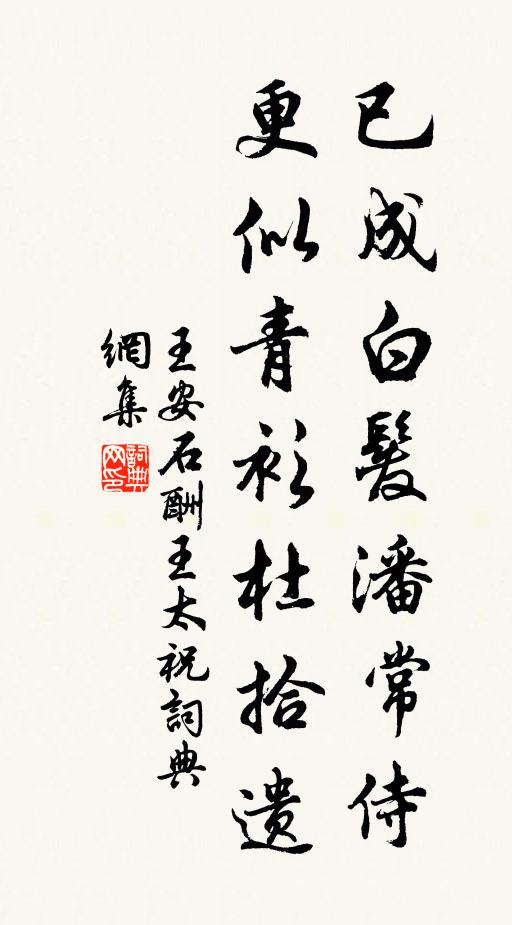 已成白髮潘常侍
更似青衫杜拾遺
王安石酬王太祝詞典
網集
詞典
网印